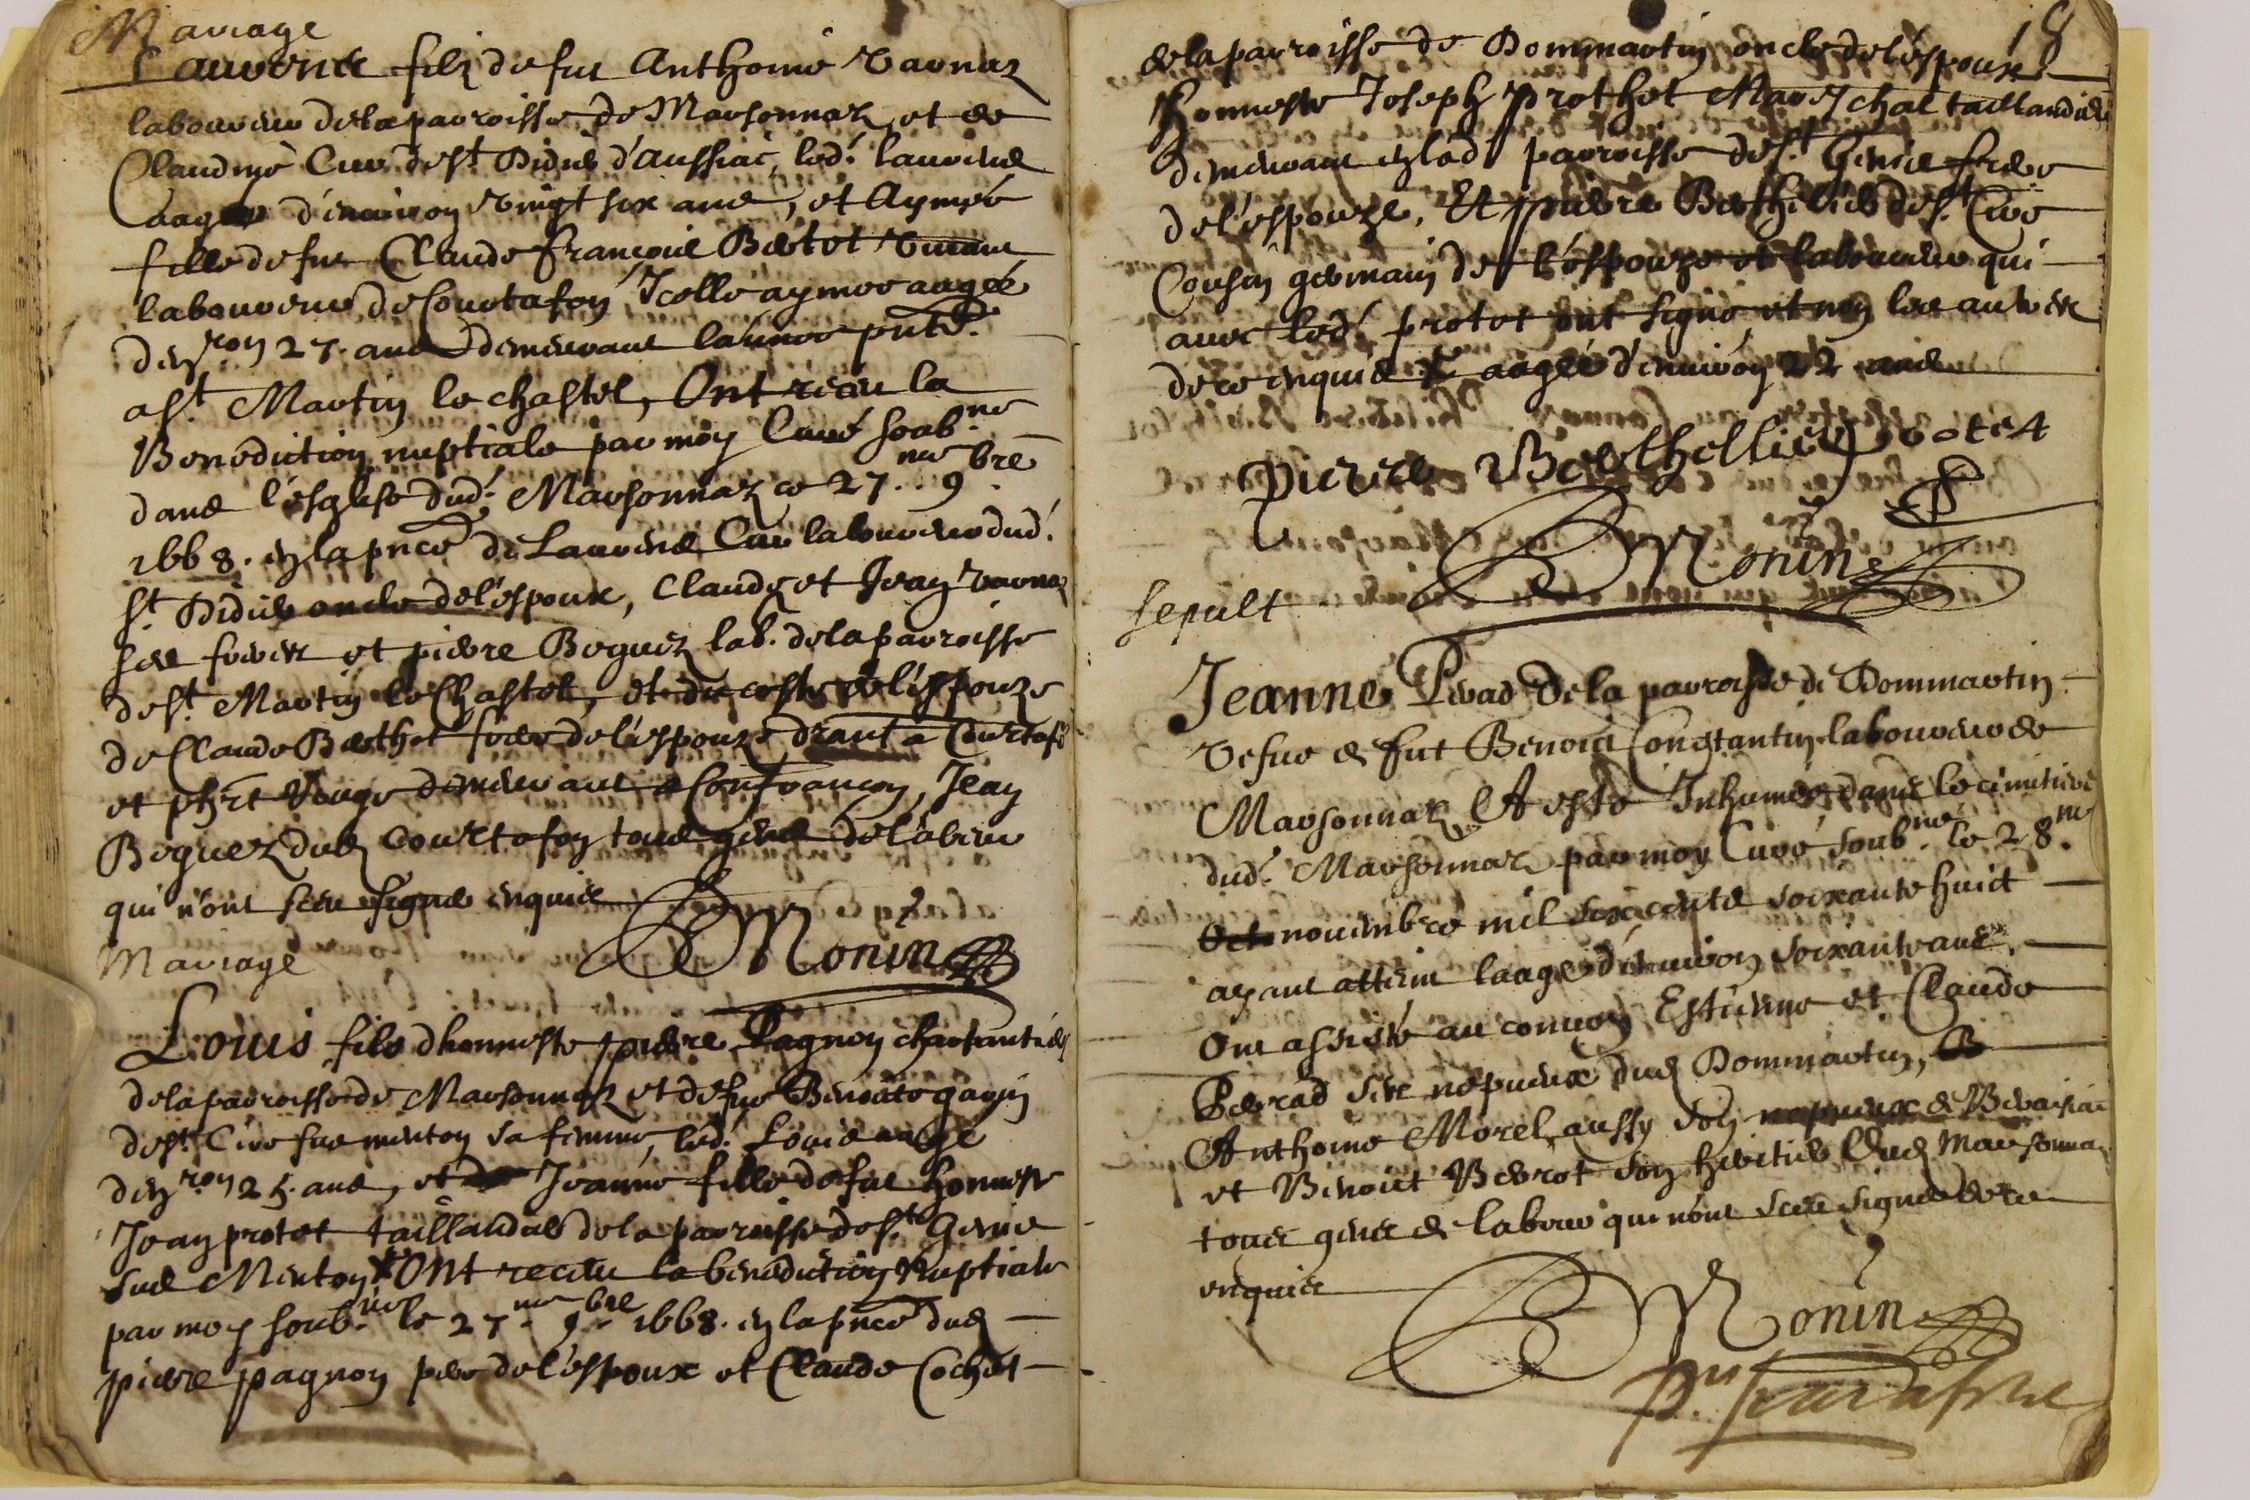 Mariage
Laurens filz de fut Anthoine Varnaz
laboureur de la parroisse de Marsonnaz et de
Claudine Curt de St Didier d'Aussiac, led. laurens
aagé d'environ vingt six ans, et Aymée
fille de fut Claude françois Bertet vivant
laboureur de Courtafon Icelle aymee aagée
denron 27. ans demeurant
a St Martin le chastel, Ont receu la
Benediction nuptiale par moy Curé soub.ne
dans l'esglise dud. Marsonnaz ce 27.me 9.bre
1668. en la pnce de Laurens Curt laboureur dud.
St Didier oncle de l'espoux, Claude et Jean varnaz
ses freres et pierre Boguez lab. de la parroisse
de St Martin le Chastel, et du coste de l'espouze
de Claude Berthet frere de l'espouze drant a Courtafõ
et demeurant a Confrançon, Jean
Boguez dud Courtafon tous gens de labeur
qui n'ont sceu signer enquis
Monin
Mariage
Louis fils d'honneste pierre Pagnon charpantier
de la parroisse de Marsonnaz et de fue Benoite gavin
de St Cire fue menton sa femme, led. Louis aagé
denron 25. ans, et Jeanne fille de fut honneste
Jean protet taillandier de la parroisse de St Genis
sus Menton * Ont receu la benediction Nuptiale
par moy soub.ne le 27.me 9.bre 1668. en la pnce dud
pierre pagnon pere de l'espoux et Claude Cochet
18
de la parroisse de Dommartin oncle de l'espoux
honneste Joseph Prothet Mareschal taillandier
demeurant en lad parroisse de St Genis frere
de l'espouze, Et pierre Berthelier de St Cire
Cousin germain de l'espouze et laboureur qui
avec led. protet ont signé et non les autres
de ce enquis * aagée d'environ 22 ans
Pierre Berthellier
Monin
sepult
Jeanne Perad de la parroisse de Dommartin
vefve de fut Benoict Constantin laboureur de
Marsonnaz A esté Inhumée dans le cimitiere
dud. Marsonnaz par moy Curé soub.ne le 28.me
novembre mil six cents soixante huict
ayant atteint l'aage d'environ soixante ans.
Ont assisté au convoy Estienne et Claude
Perrad ses nepveux dud Dommartin,
Anthoine Morel aussy son nepveux de
et Benoit Berrot son heritier dud Marsonnaz
tous gens de labeur qui n'ont sceu signer de ce
enquis
Monin